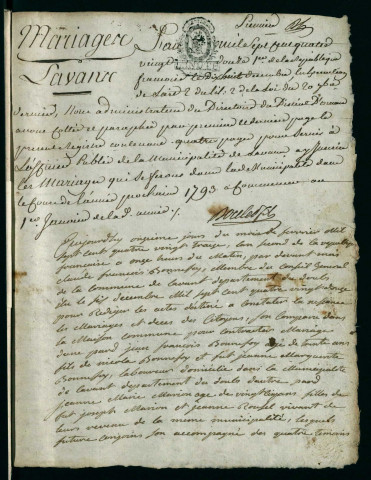 Premier
Mariages
Lavans
L'an mil Sept cent quatre
vingt douze 1er de la République
françoise le dixhuit decembre
de l'art 2 du tit. 2 de la loi du 20 7bre
dernier, Nous administrateur du Directoire du District
avons cotté et paraphé par premier et dernier page le
present Registre contenant quatre pages pour servir à
l'officier Public de la Municipalité de Lavans a y inscrire
les Mariages qui se feront dans la de Municipalité dans
le cours de l'année prochain 1793 a Commencer au
1er Janvier de lad. année
Aujourd'huy onzieme jour du mois de fevrier Mil
sept cent quatre vingt treize, l'an second de la republique
francaise a onze heures du Matin, par devant moi
claude francois Bonnefoy, Membre du Conseil General
de la commune de Lavans departement du doubs
le dix decembre Mil sept cent quatre vingt douze
pour Rediger les actes destiné a Constater la naissance
les Mariages et deces des Citoyens, son Comparu dans
la Maison commune pour contracter Mariage
d'une part jean francois Bonnefoy agé de trente ans
fils de nicolas Bonnefoy et fut jeanne Marguerite
Bonnefoy, laboureur domicilié dans la Municipalité
de Lavans departement du doubs d'autre part
jeanne Marie Marion age de vingt six ans filles de
fut joseph Marion et jeanne Roussel vivant de
leurs revenu de la meme municipalité, lesquels
future conjoins son accompagné des quatre temoins